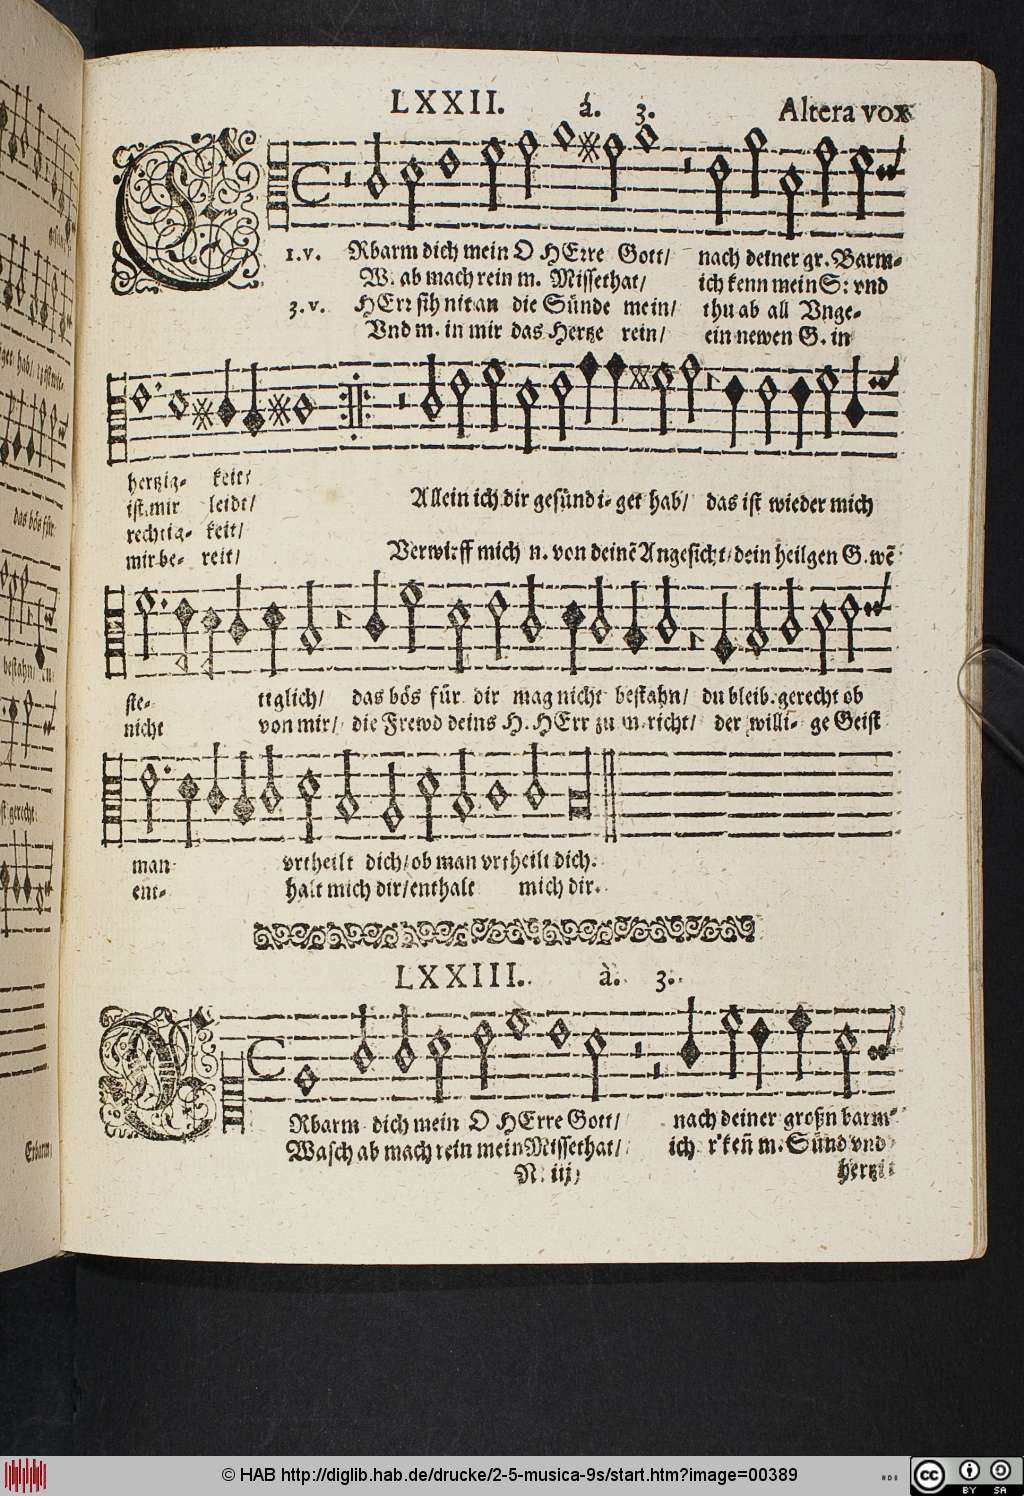 LXXII. á. 3. Altera vox
1.v. ERbarm dich mein O HErre Gott/ nach deiner gr. Barm-
W. ab mach rein m. Missethat/ ich kenn mein S: vnd
3.v. HErr sih nit an die Sünde mein/ thu ab all Vnge-
Vnd m. in mir das Hertze rein/ ein newen G. in
hertzig- keit/
ist mir leidt/ Allein ich dir gesündi- get hab/ das ist wieder mich
rechtig- keit/
mir be- reit/ Verwirff mich n. von deinē Angesicht/ dein heilgen G. wē
ste- tiglich/ das bös für dir mag nicht bestahn/ du bleib. gerecht ob
nicht von mir/ die Frewd deins H. HErr zu m. richt/ der willi- ge Geist
man vrtheilt dich/ ob man vrtheilt dich.
ent- halt mich dir/ enthalt mich dir.
LXXIII. à. 3.
ERbarm dich mein O HErre Gott/ nach deiner großn barm-
Wasch ab mach rein mein Missethat/ ich r'keñ m. Sünd vnd
N. iij
das bös für
bestahn/
gerecht
Erbarm
© HAB http://diglib.hab.de/drucke/2-5-musica-9s/start.htm?image=00389
cc BY SA